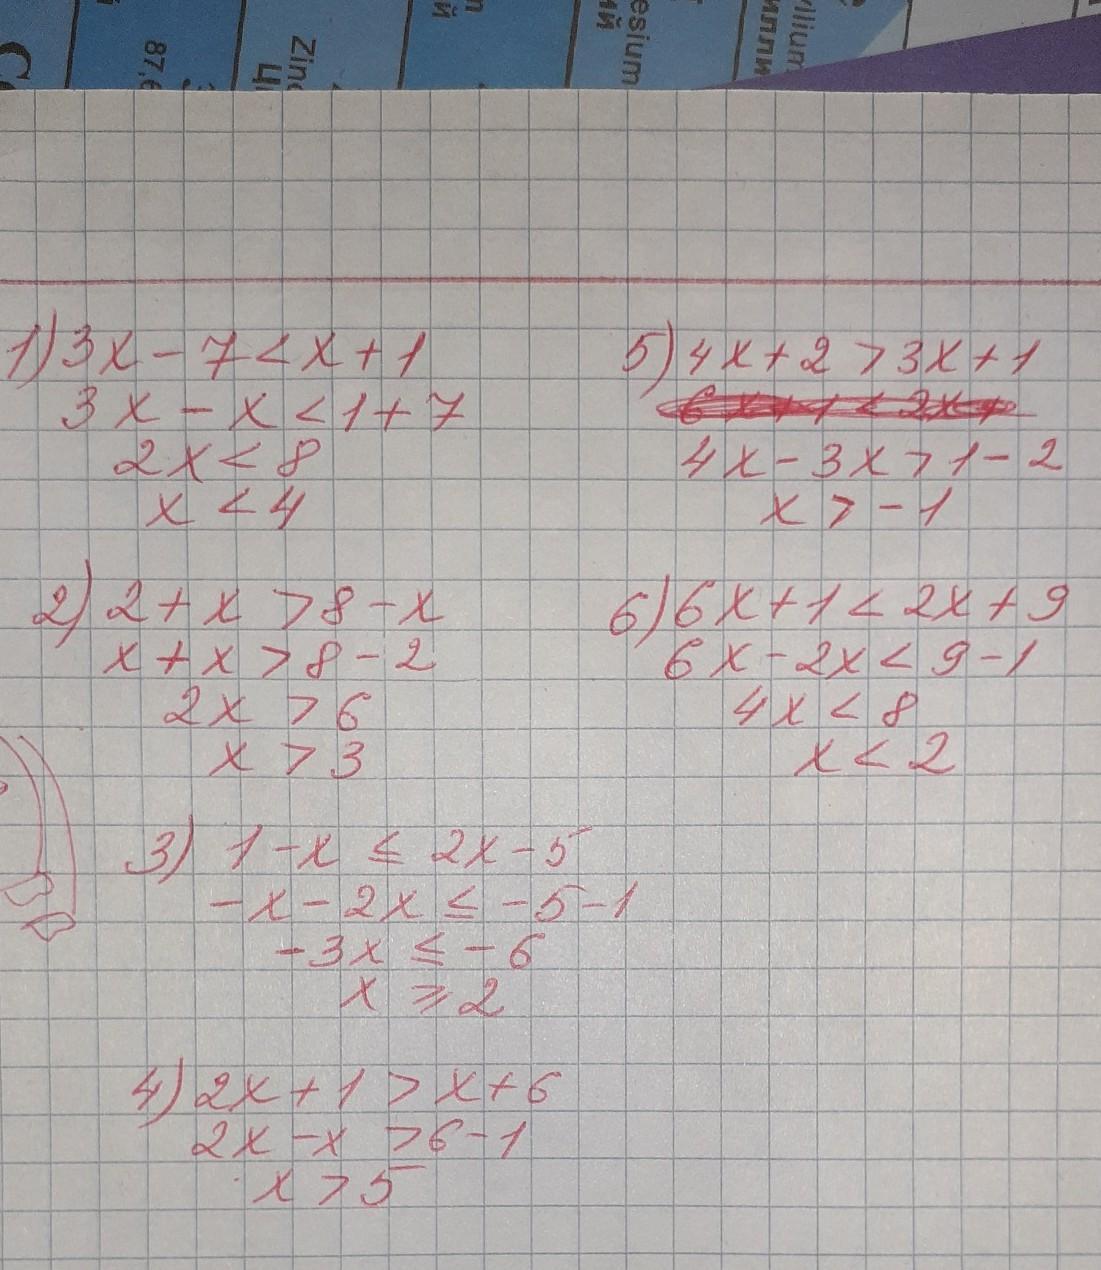 esium
Zinc
Ц
87,6
ий
й
1) 3x - 7 < x + 1
3x - x < 1 + 7
2x < 8
x < 4
2) 2 + x > 8 - x
x + x > 8 - 2
2x > 6
x > 3
3) 1 - x ≤ 2x - 5
-x - 2x ≤ -5 - 1
-3x ≤ -6
x ⩾ 2
4) 2x + 1 > x + 6
2x - x > 6 - 1
x > 5
5) 4x + 2 > 3x + 1
4x - 3x > 1 - 2
x > -1
6) 6x + 1 < 2x + 9
6x - 2x < 9 - 1
4x < 8
x < 2